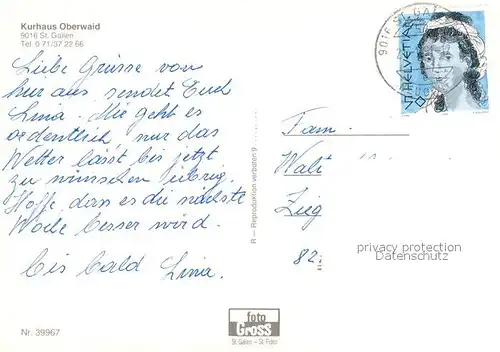 Kurhaus Oberwaid
9016 St. Gallen
Tel. 0 71/37 22 66
Liebe Grüsse von
hier aus sendet Euch
Lina. Mir geht es
ordentlich, nur das
Wetter lässt bis jetzt
zu wünschen übrig.
Hoffe, dass es die nächste
Woche besser wird.
Bis bald Lina.
9016 ST. GAL
HELVETIA
R — Reproduktion verboten 9
Fam.
Walt
82
privacy protection
Datenschutz
foto
Gross
St. Gallen – St. Fiden
Nr. 39967